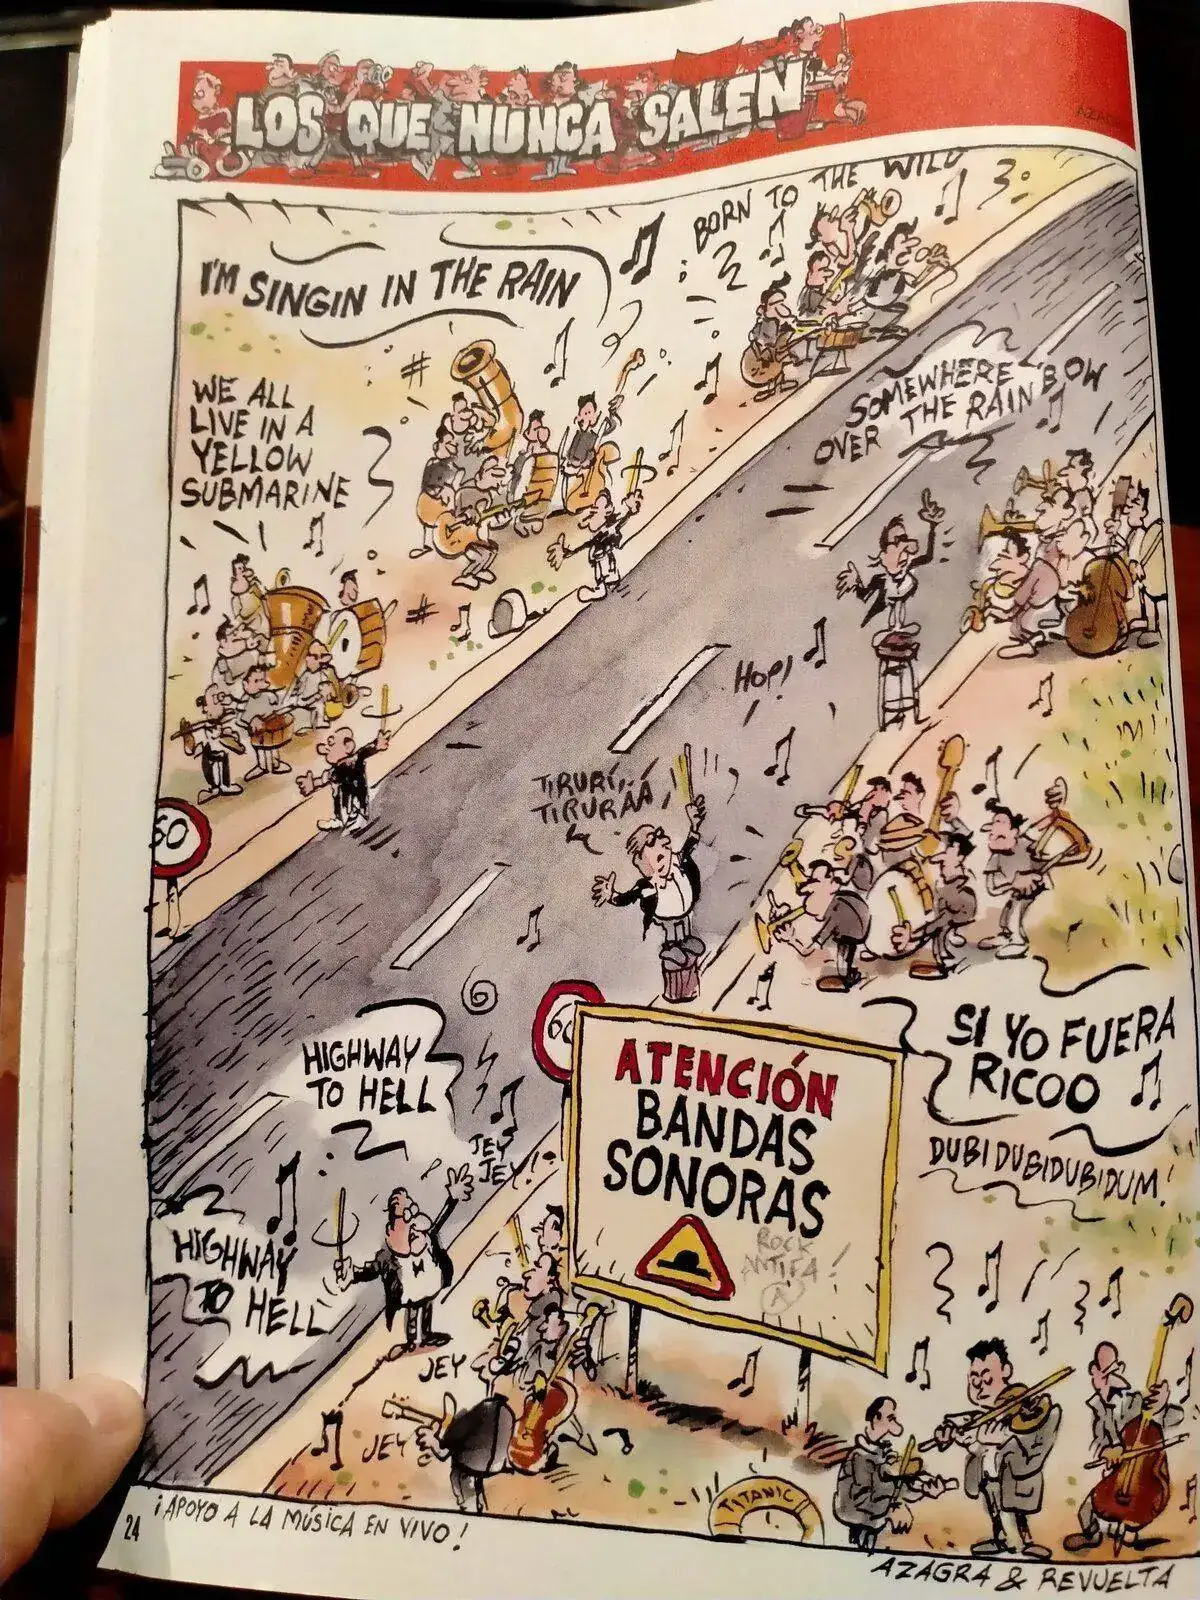 LOS QUE NUNCA SALEN
I'M SINGIN IN THE RAIN
BORN TO THE WILD
WE ALL
LIVE IN A
YELLOW
SUBMARINE
SOMEWHERE
OVER THE RAINBOW
HOP!
60
TIRURÍ...
TIRURÁÁ
HIGHWAY
TO HELL
JEY
JEY!
60
ATENCIÓN
BANDAS
SONORAS
ROCK
ANTIFA!
A
SI YO FUERA
RICOO
DUBIDUBIDUBIDUM!
HIGHWAY
TO HELL
JEY
JEY
TITANIC
24
¡APOYO A LA MÚSICA EN VIVO!
AZAGRA & REVUELTA